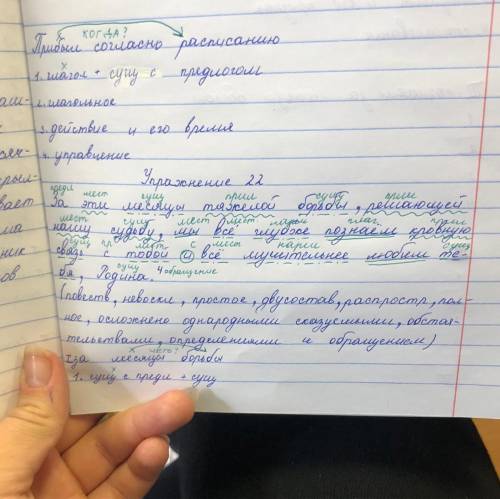 КОГДА?
Прибыл согласно расписанию
х
1. глагол + сущ с предлогом
2. глагольное
3. действие и его время
4. управление
Упражнение 22
предл мест сущ прил сущ прич
За эти месяцы тяжелой борьбы, решающей
мест сущ мест мест нареч глаг прил
нашу судьбу, мы всё глубже познаем кровную
сущ пр. мест с мест нареч сущ
связь с тобой и всё мучительнее любим те-
сущ 4 обращение
бя, Родина.
(повеств, невоскл, простое, двусостав, распростр, пол-
ное, осложнено однородными сказуемыми, обстоя-
тельствами, определениями и обращением)
х
1за месяцы борьбы
х
1. сущ с предл + сущ
аш-
ян-
рыл-
вает
ма
ник
ов